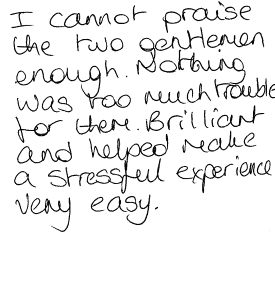 I cannot praise
the two gentlemen
enough. Nothing
was too much trouble
for them. Brilliant
and helped make
a stressful experience
very easy.